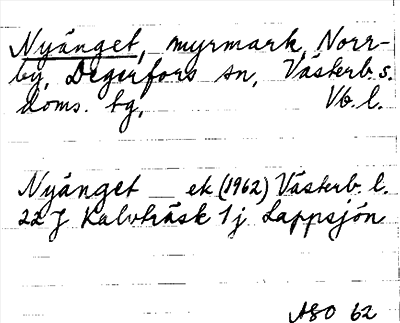 Nyänget, myrmark, Norr-
by, Degerfors sn, Västerb. s.
doms. tg, Vb. l.
Nyänget __ ek (1962) Västerb. l.
22 J Kalvträsk 1 j Lappsjön
ASO 62